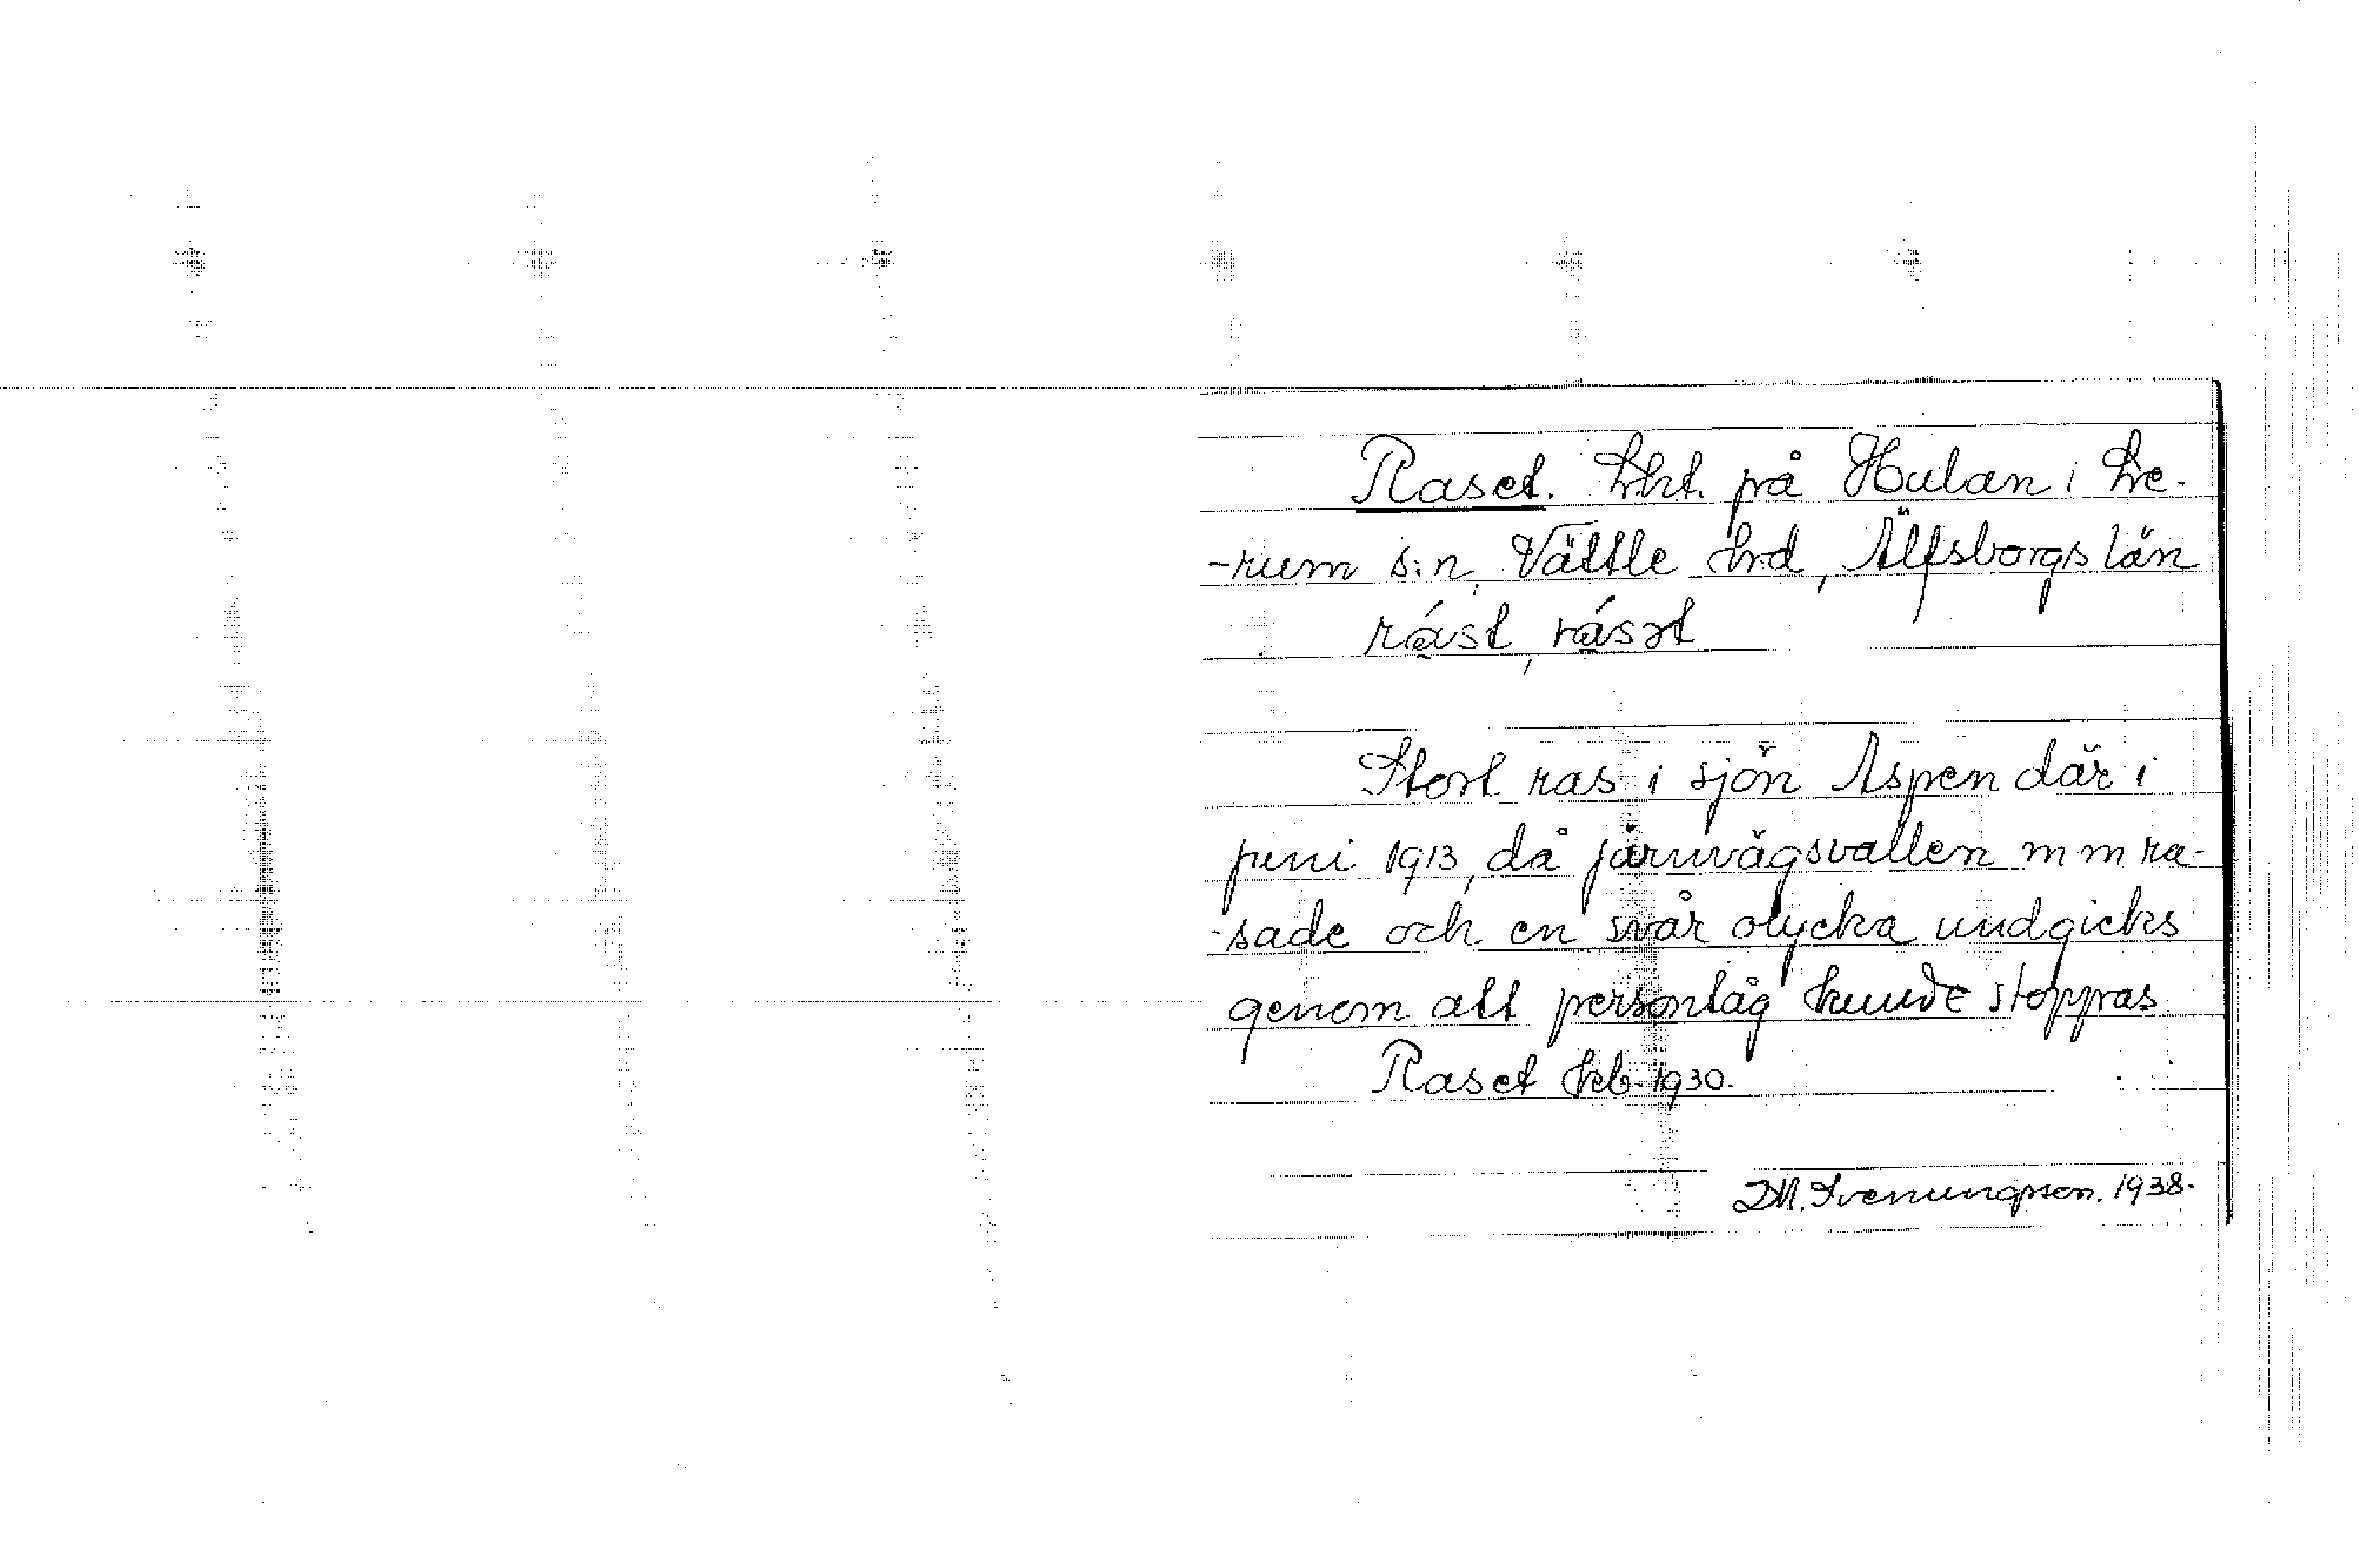 Raset. Lht. på Hulan i Le-
-rum s:n, Vättle h:d, Älfsborgs län
rást, rásət
Stort ras i sjön Aspen där i
juni 1913, då järnvägsvallen m m ra-
-sade och en svår olycka undgicks
genom att persontåg kunde stoppas
Raset feb. 1930.
DM. Svenungsson. 1938.